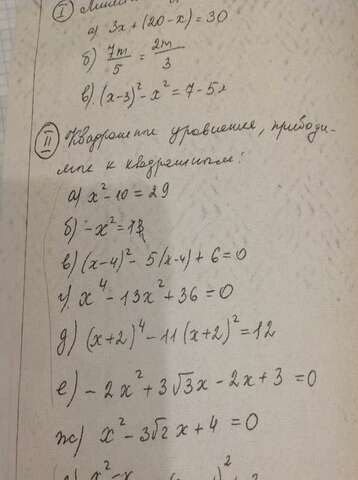 I
а) 3x + (20 - x) = 30
б) 7m/5 = 2m/3
в) (x-3)² - x² = 7 - 5x
II Квадратные уравнения, приводи-
мые к квадратным:
а) x² - 10 = 29
б) -x² = 13
в) (x-4)² - 5(x-4) + 6 = 0
г) x⁴ - 13x² + 36 = 0
д) (x+2)⁴ - 11(x+2)² = 12
е) -2x² + 3√3x - 2x + 3 = 0
ж) x² - 3√2x + 4 = 0